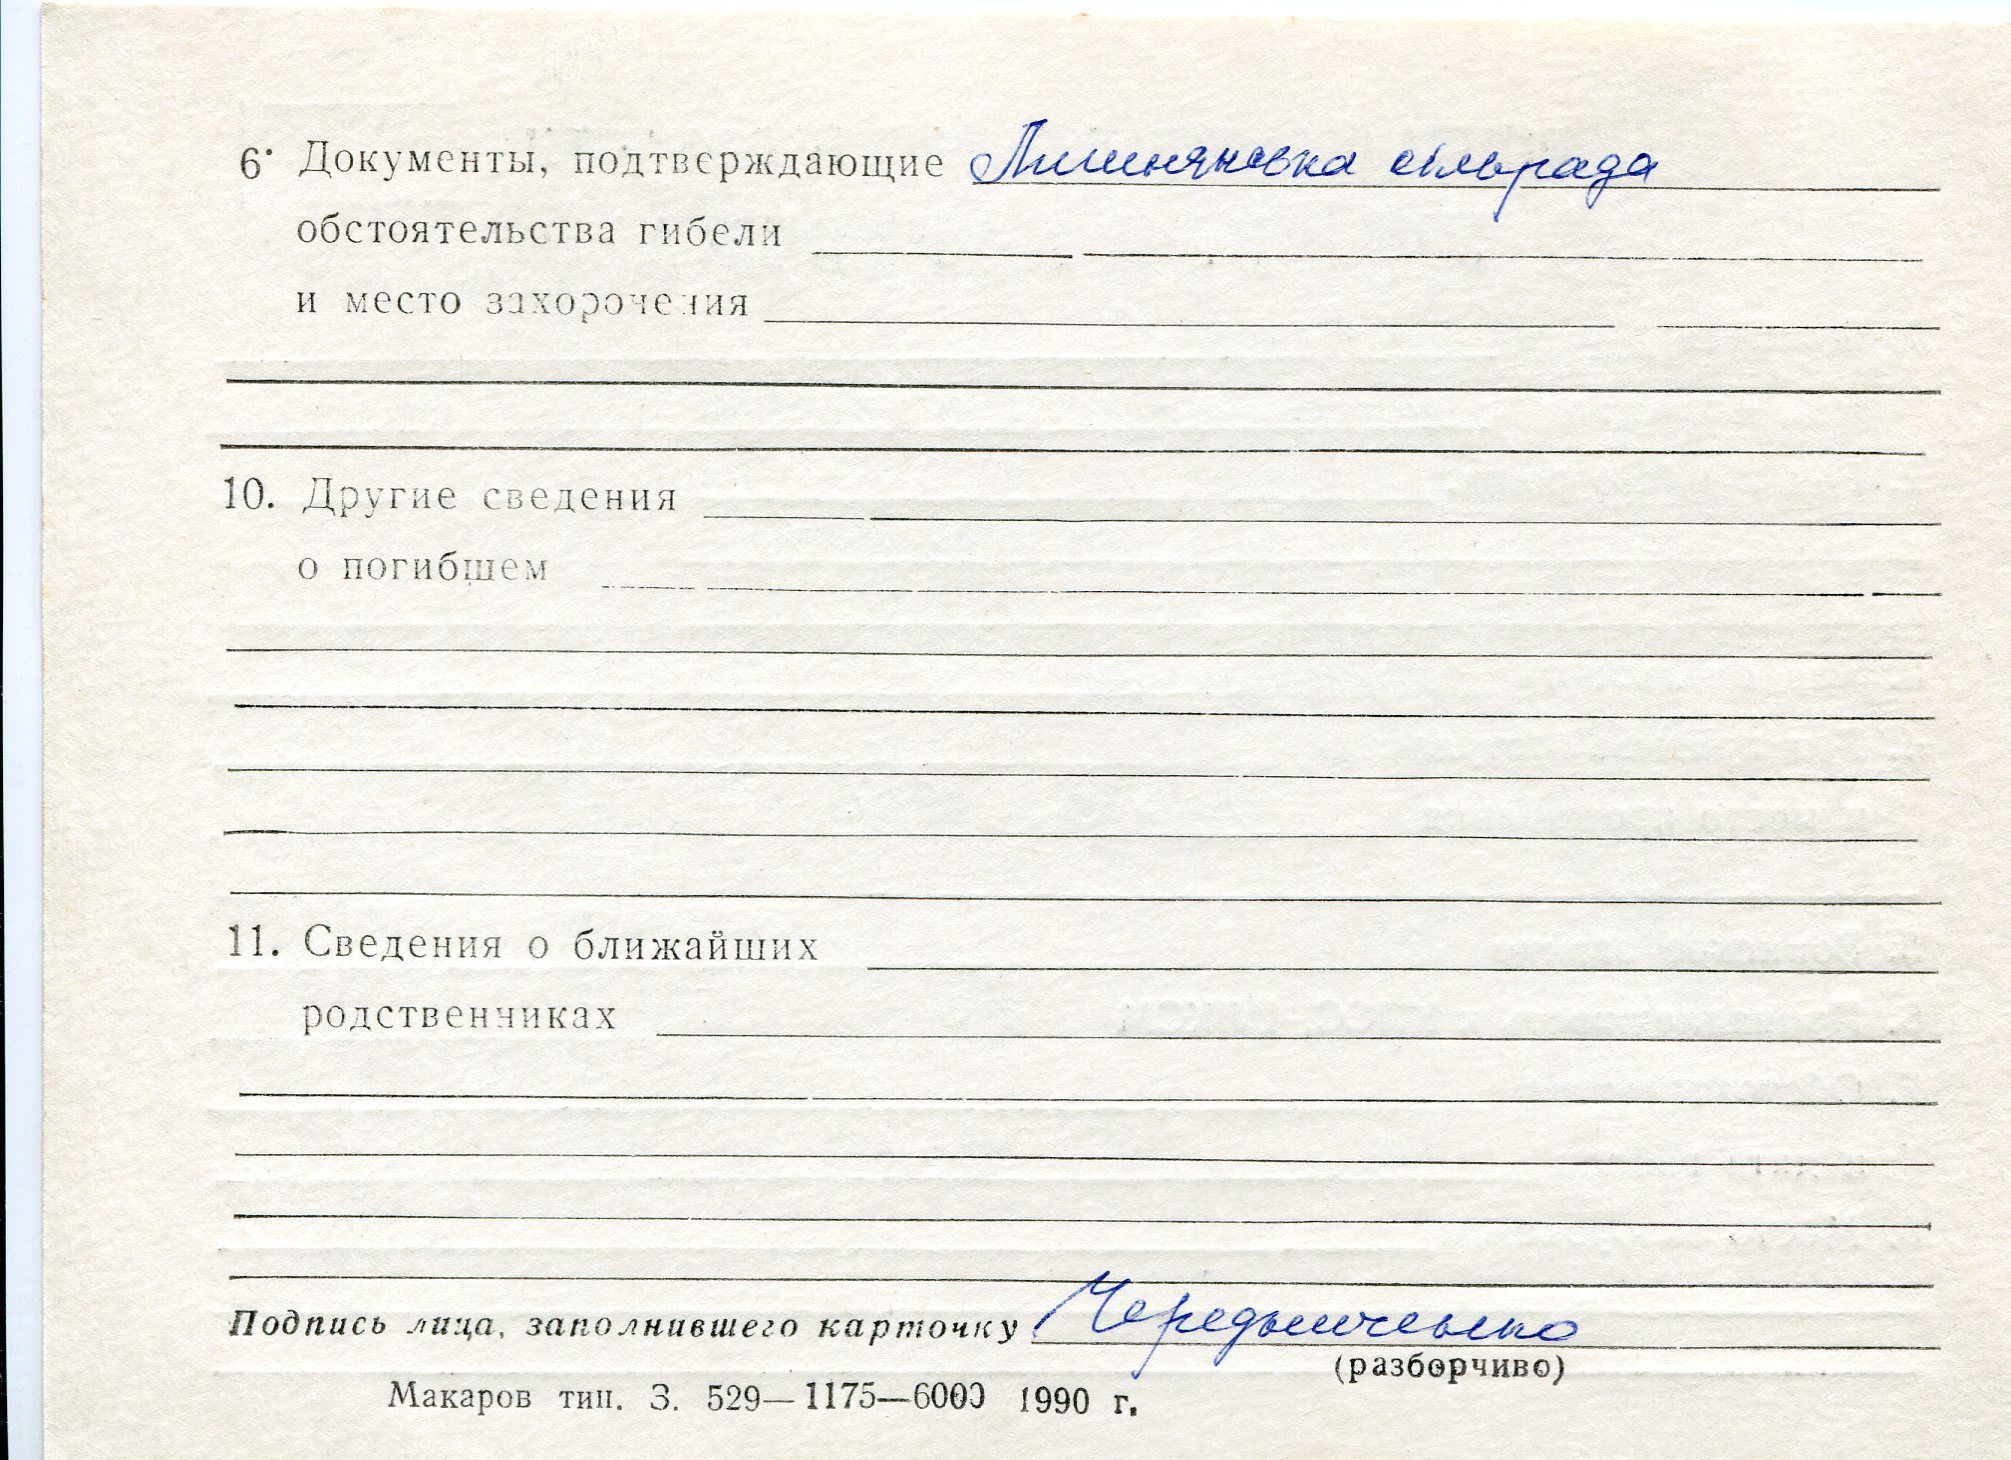 6. Документы, подтверждающие Лишнянська сільрада
обстоятельства гибели
и место захоронения
10. Другие сведения
о погибшем
11. Сведения о ближайших
родственниках
Подпись лица, заполнившего карточку
(разборчиво)
Макаров тип. З. 529—1175—6000 1990 г.